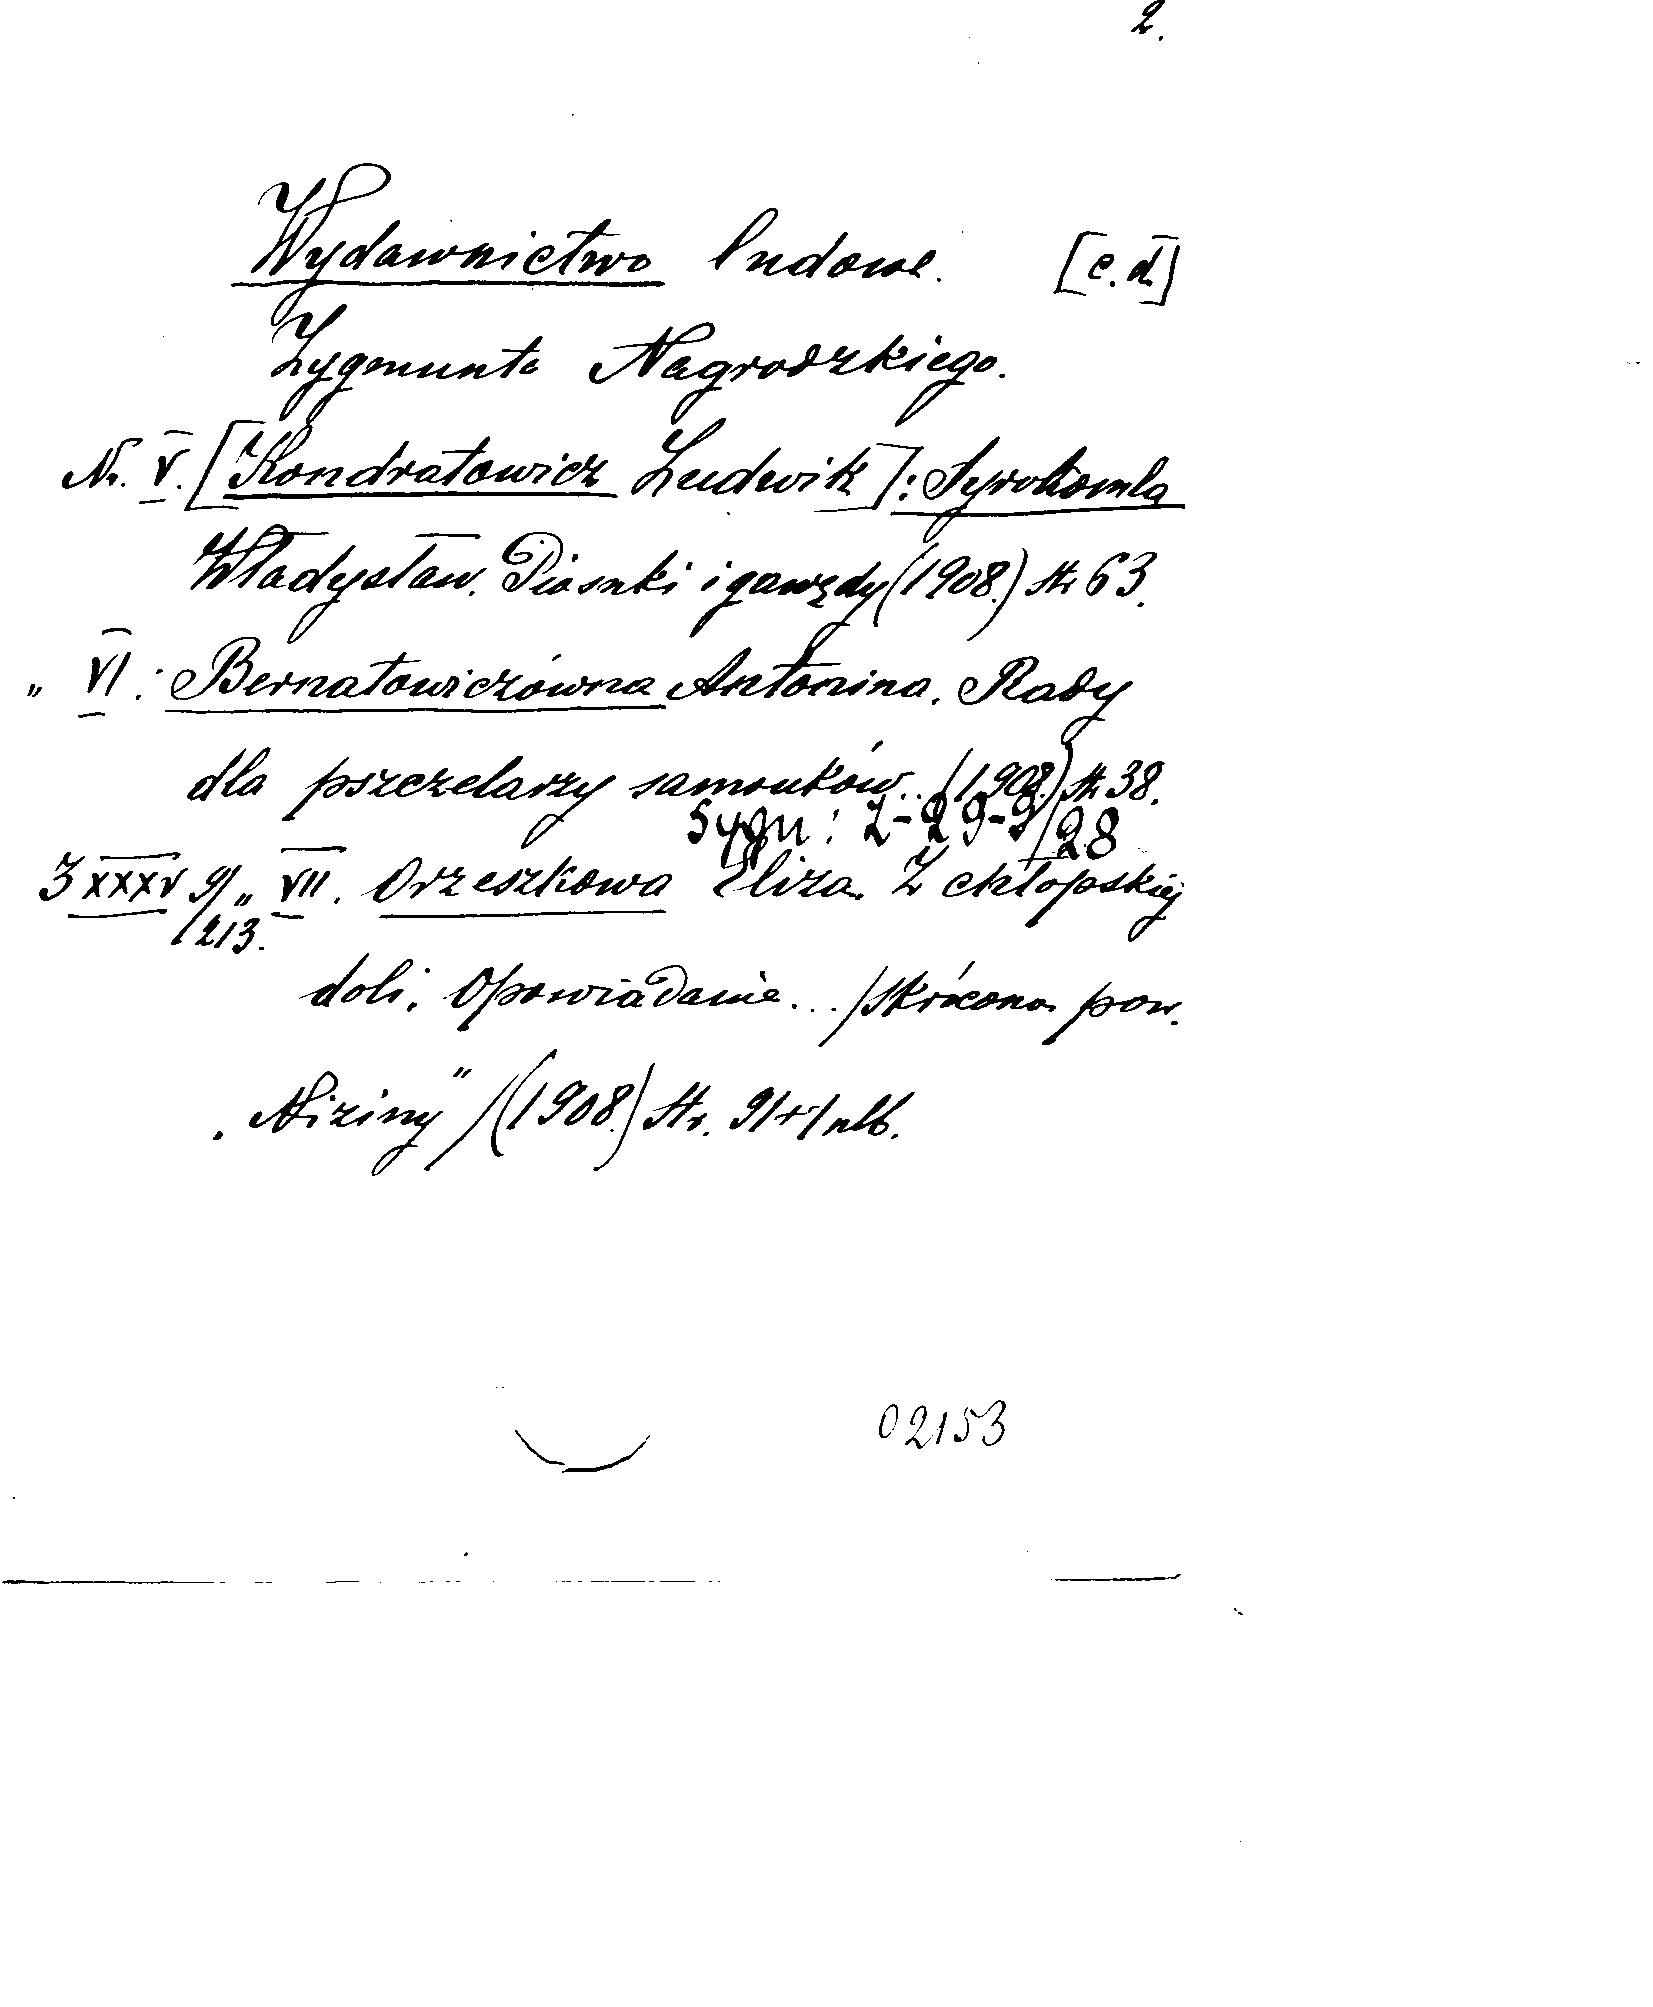 2.
Wydawnictwo ludowe. [c.d.]
Zygmunta Nagrodzkiego.
Nr. V. [Kondratowicz Ludwik]: Syrokomla
Władysław. Piosnki i gawędy (1908.) str 63.
„ VI. Bernatowiczówna Antonina. Rady
dla pszczelarzy samouków... (1908.) str 38.
Sygn: 2-29-9/28
3 XXXV 9/213. „ VII. Orzeszkowa Eliza. Z chłopskiej
doli. Opowiadanie... /skrócona pow.
„Niziny"/ (1908.) str. 91+1 nlb.
02153